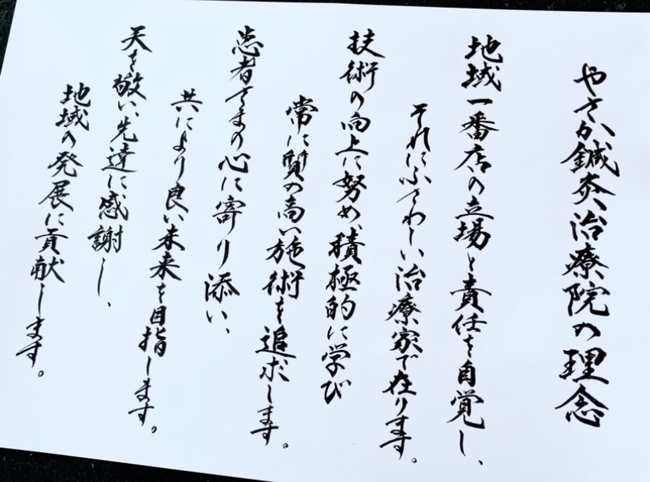 やさか鍼灸治療院の理念
地域一番店の立場と責任を自覚し、
それにふさわしい治療家で在ります。
技術の向上に努め積極的に学び
常に質の高い施術を追求します。
患者さまの心に寄り添い、
共により良い未来を目指します。
天を敬い先達に感謝し、
地域の発展に貢献します。